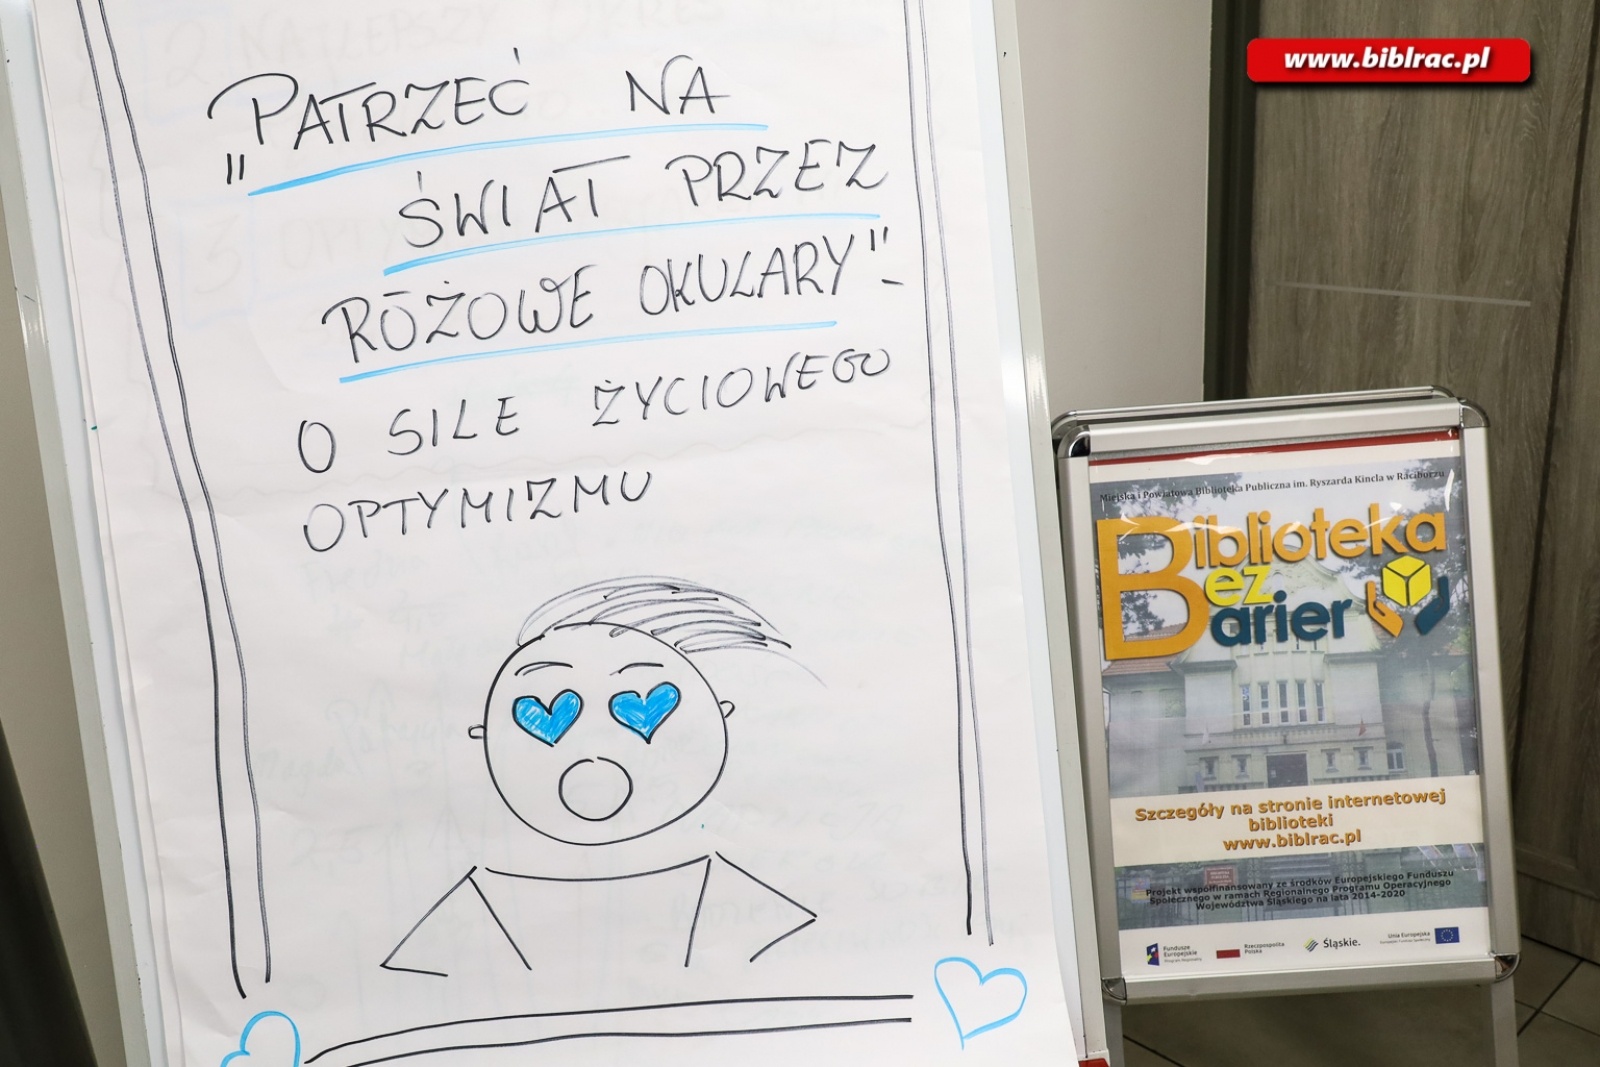 www.biblrac.pl
„PATRZEĆ NA
ŚWIAT PRZEZ
RÓŻOWE OKULARY" -
O SILE ŻYCIOWEGO
OPTYMIZMU
Miejska i Powiatowa Biblioteka Publiczna im. Ryszarda Kincla w Raciborzu
Biblioteka
Bez
Barier
Szczegóły na stronie internetowej
biblioteki
www.biblrac.pl
Projekt współfinansowany ze środków Europejskiego Funduszu
Społecznego w ramach Regionalnego Programu Operacyjnego
Województwa Śląskiego na lata 2014-2020
Fundusze
Europejskie
Program Regionalny
Rzeczpospolita
Polska
Śląskie.
Unia Europejska
Europejski Fundusz Społeczny